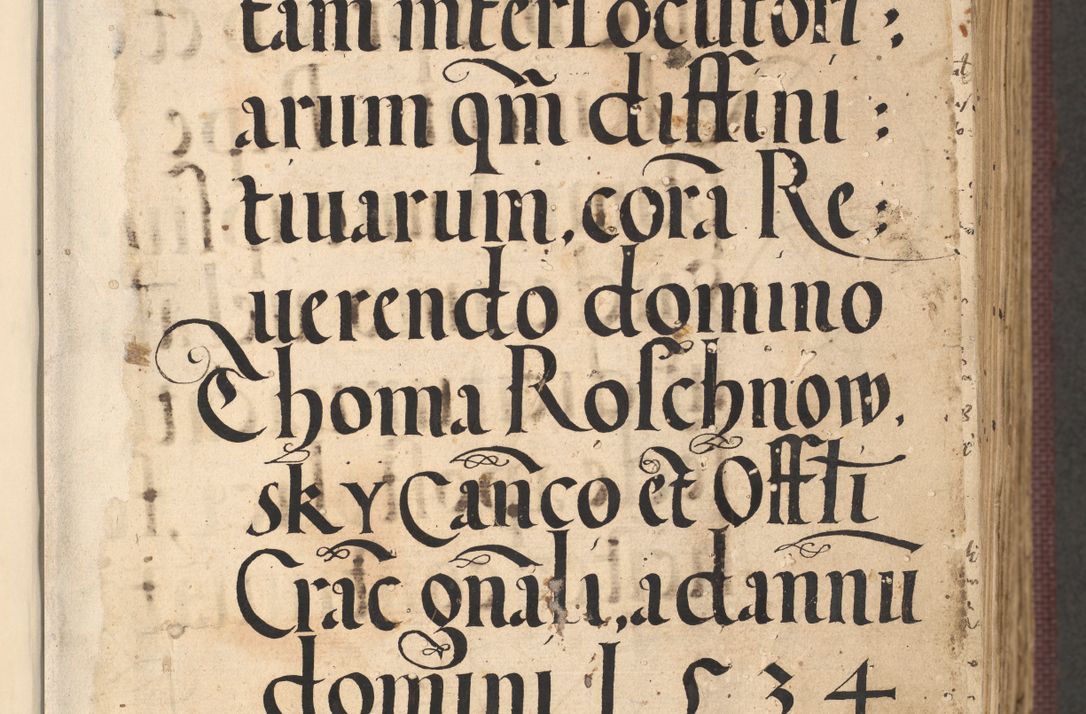 tam interLocutori :
arum qm̃ diffini :
tiuarum, corã Re :
uerendo domino
Thoma Roſchnow.
skY Cañco et̃ Offti
Crac̃ gñali, ad annũ
domini 1 5 3 4